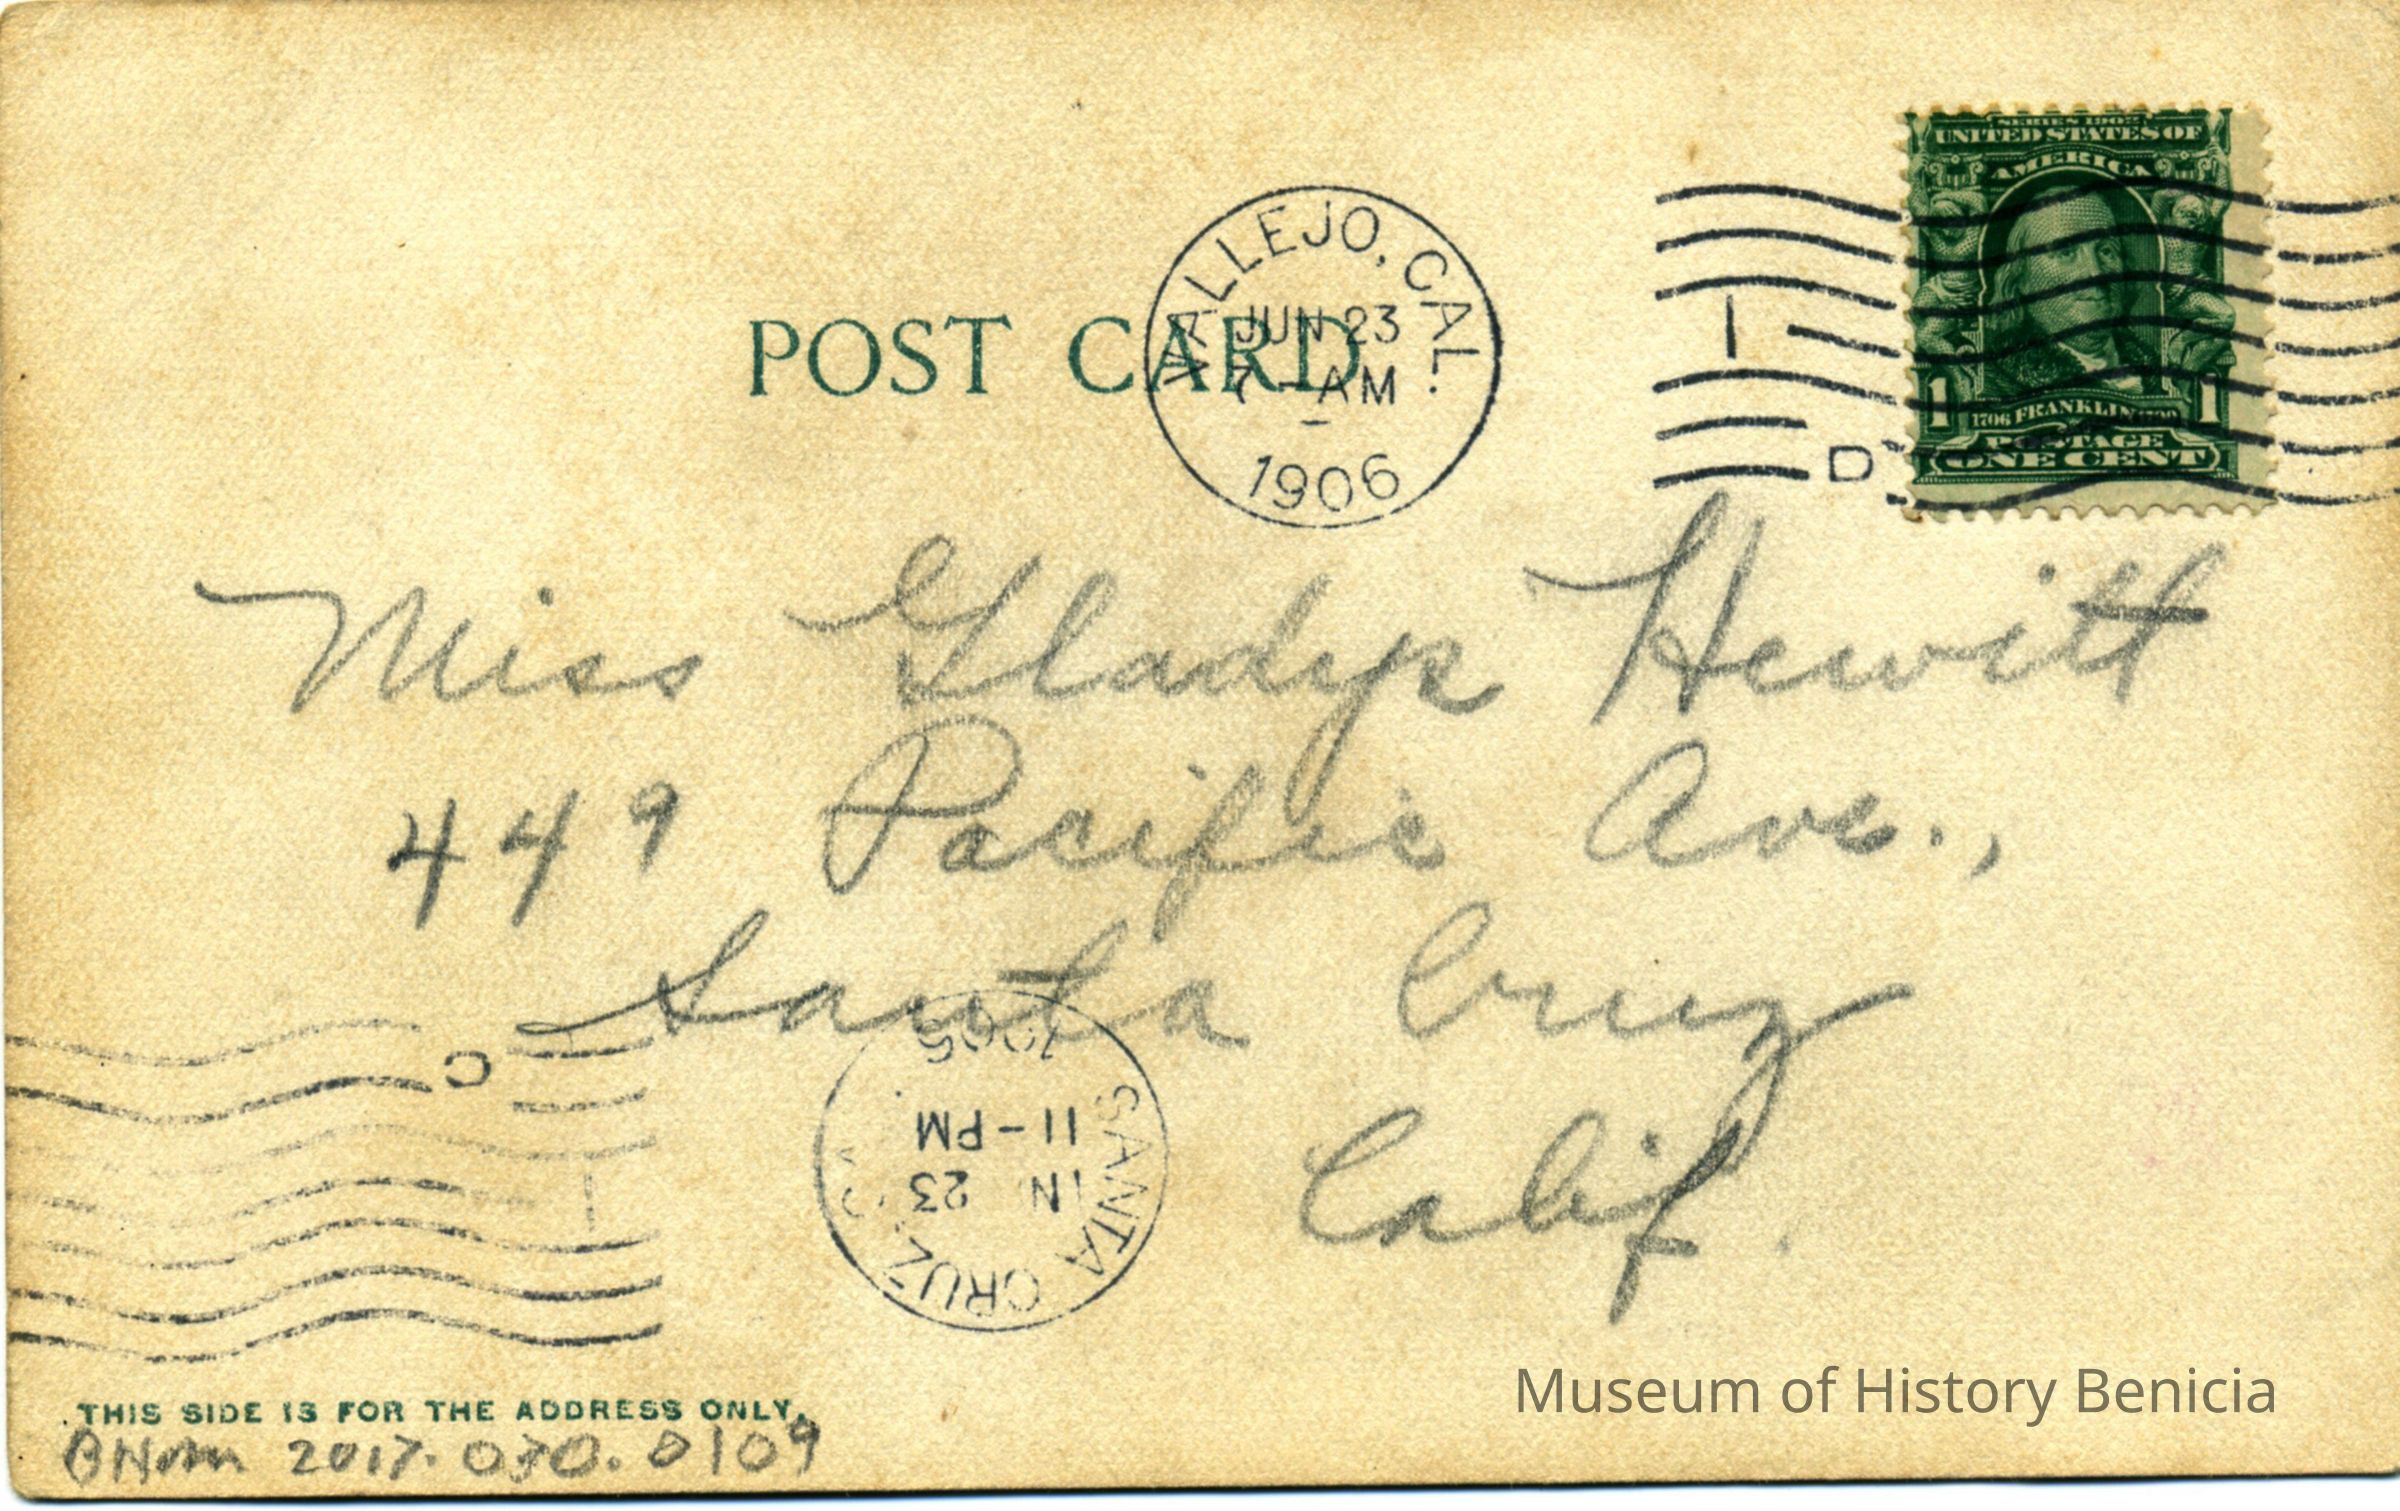 SERIES 1902
UNITED STATES OF
AMERICA
1 1
1706 FRANKLIN 1790
POSTAGE
ONE CENT
VALLEJO, CAL.
JUN 23
7 - AM
1906
1
D
POST CARD
Miss Gladys Hewitt
449 Pacific Ave.,
Santa Cruz
Calif.
C
1
SANTA CRUZ, CA
11-PM
23
THIS SIDE IS FOR THE ADDRESS ONLY.
BHM 2017.030.0109
Museum of History Benicia